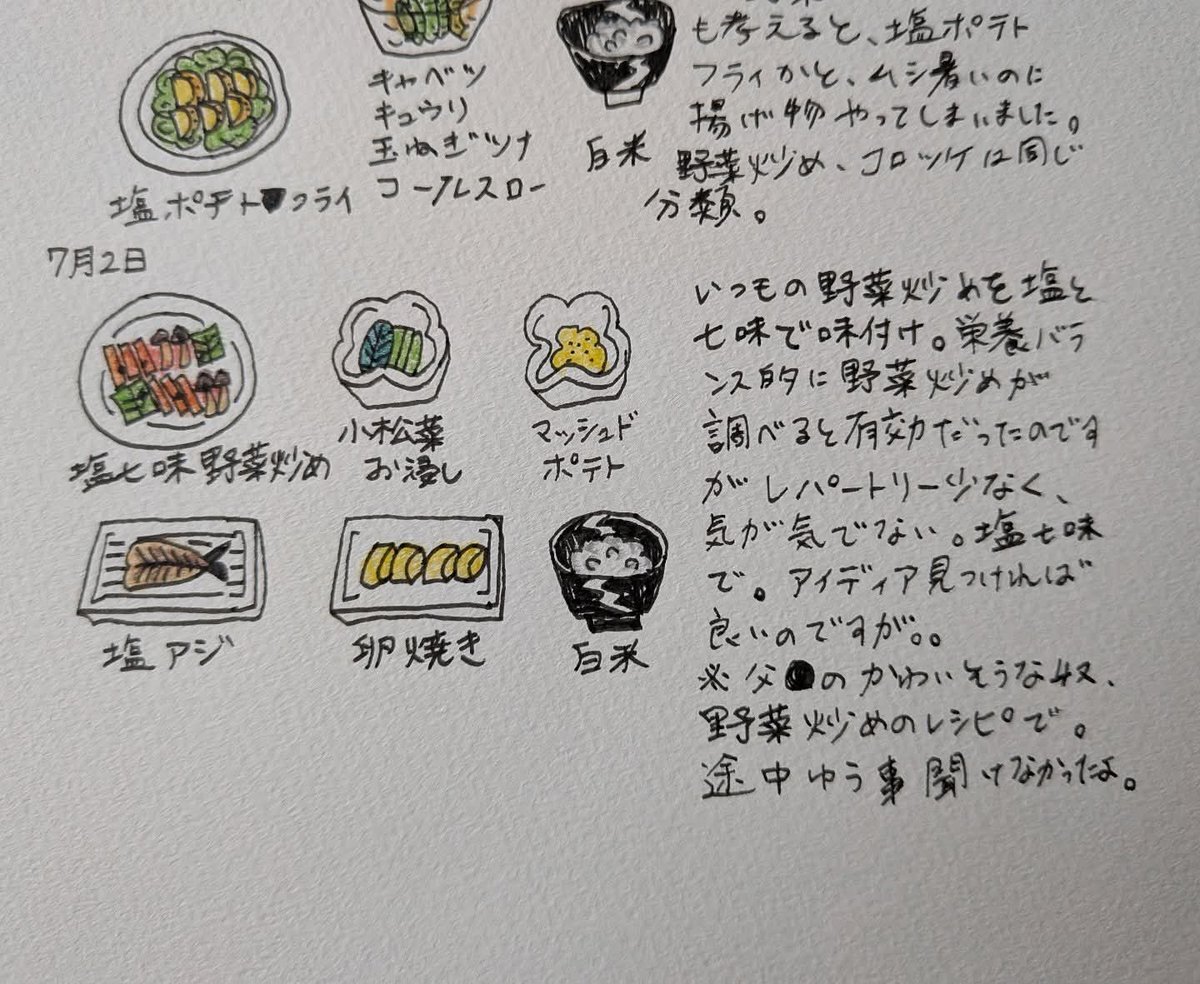 キャベツ
キュウリ
玉ねぎツナ
コールスロー
白米
塩ポテトフライ
も考えると、塩ポテト
フライかと、ムシ暑いのに
揚げ物やってしまいました。
野菜炒め、コロッケは同じ
分類。
7月2日
塩七味野菜炒め
小松菜
お浸し
マッシュド
ポテト
塩アジ
卵焼き
白米
いつもの野菜炒めを塩と
七味で味付け。栄養バラ
ンス的に野菜炒めが
調べると有効だったのです
がレパートリー少なく、
気が気でない。塩七味
で。アイディア見つければ
良いのですが。。
※父のかわいそうな奴、
野菜炒めのレシピで。
途中ゆう事聞けなかったよ。